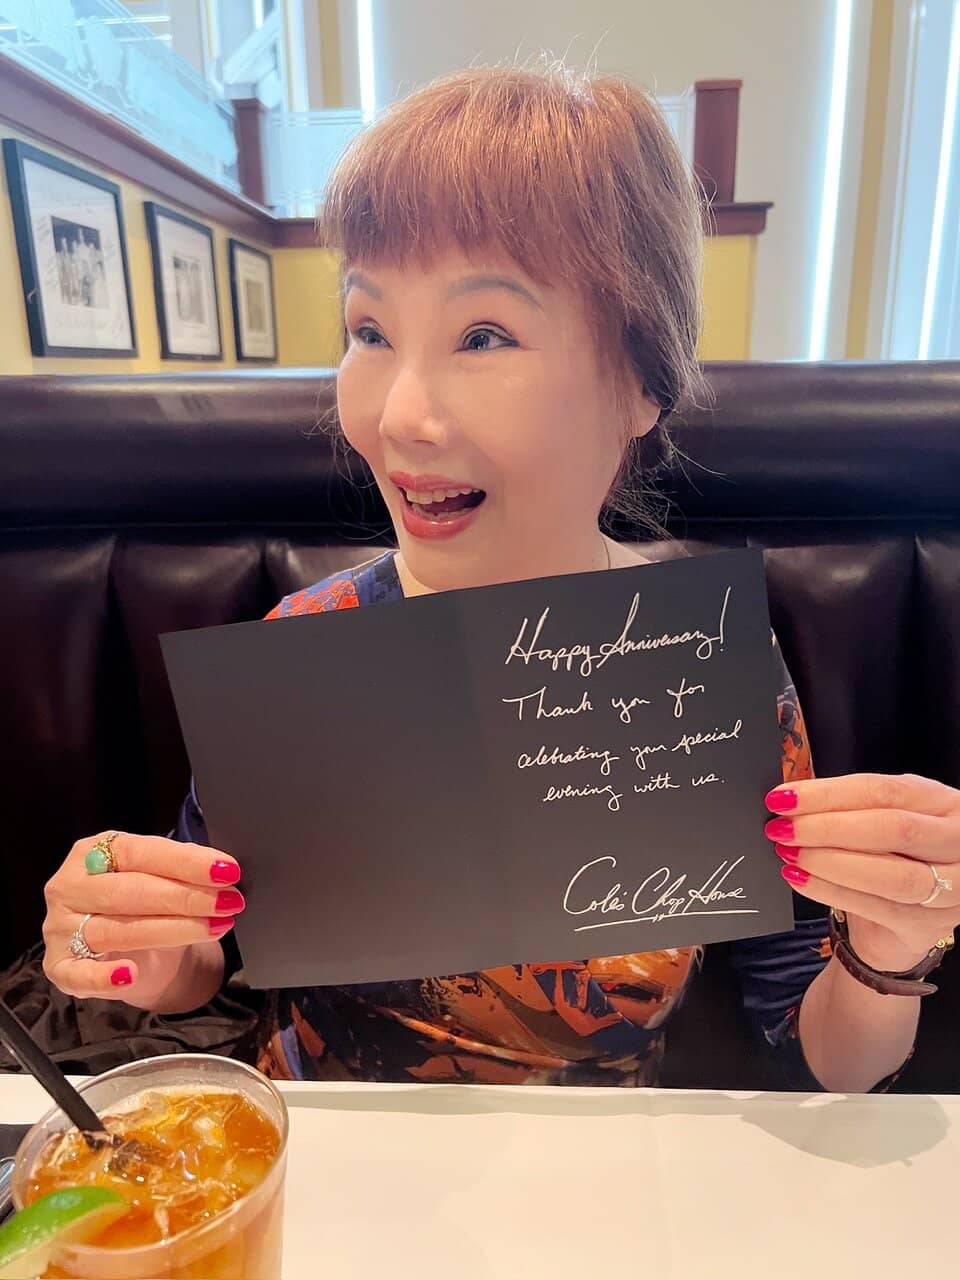 Happy Anniversary!
Thank you for
celebrating your special
evening with us.
Cole's Chop House